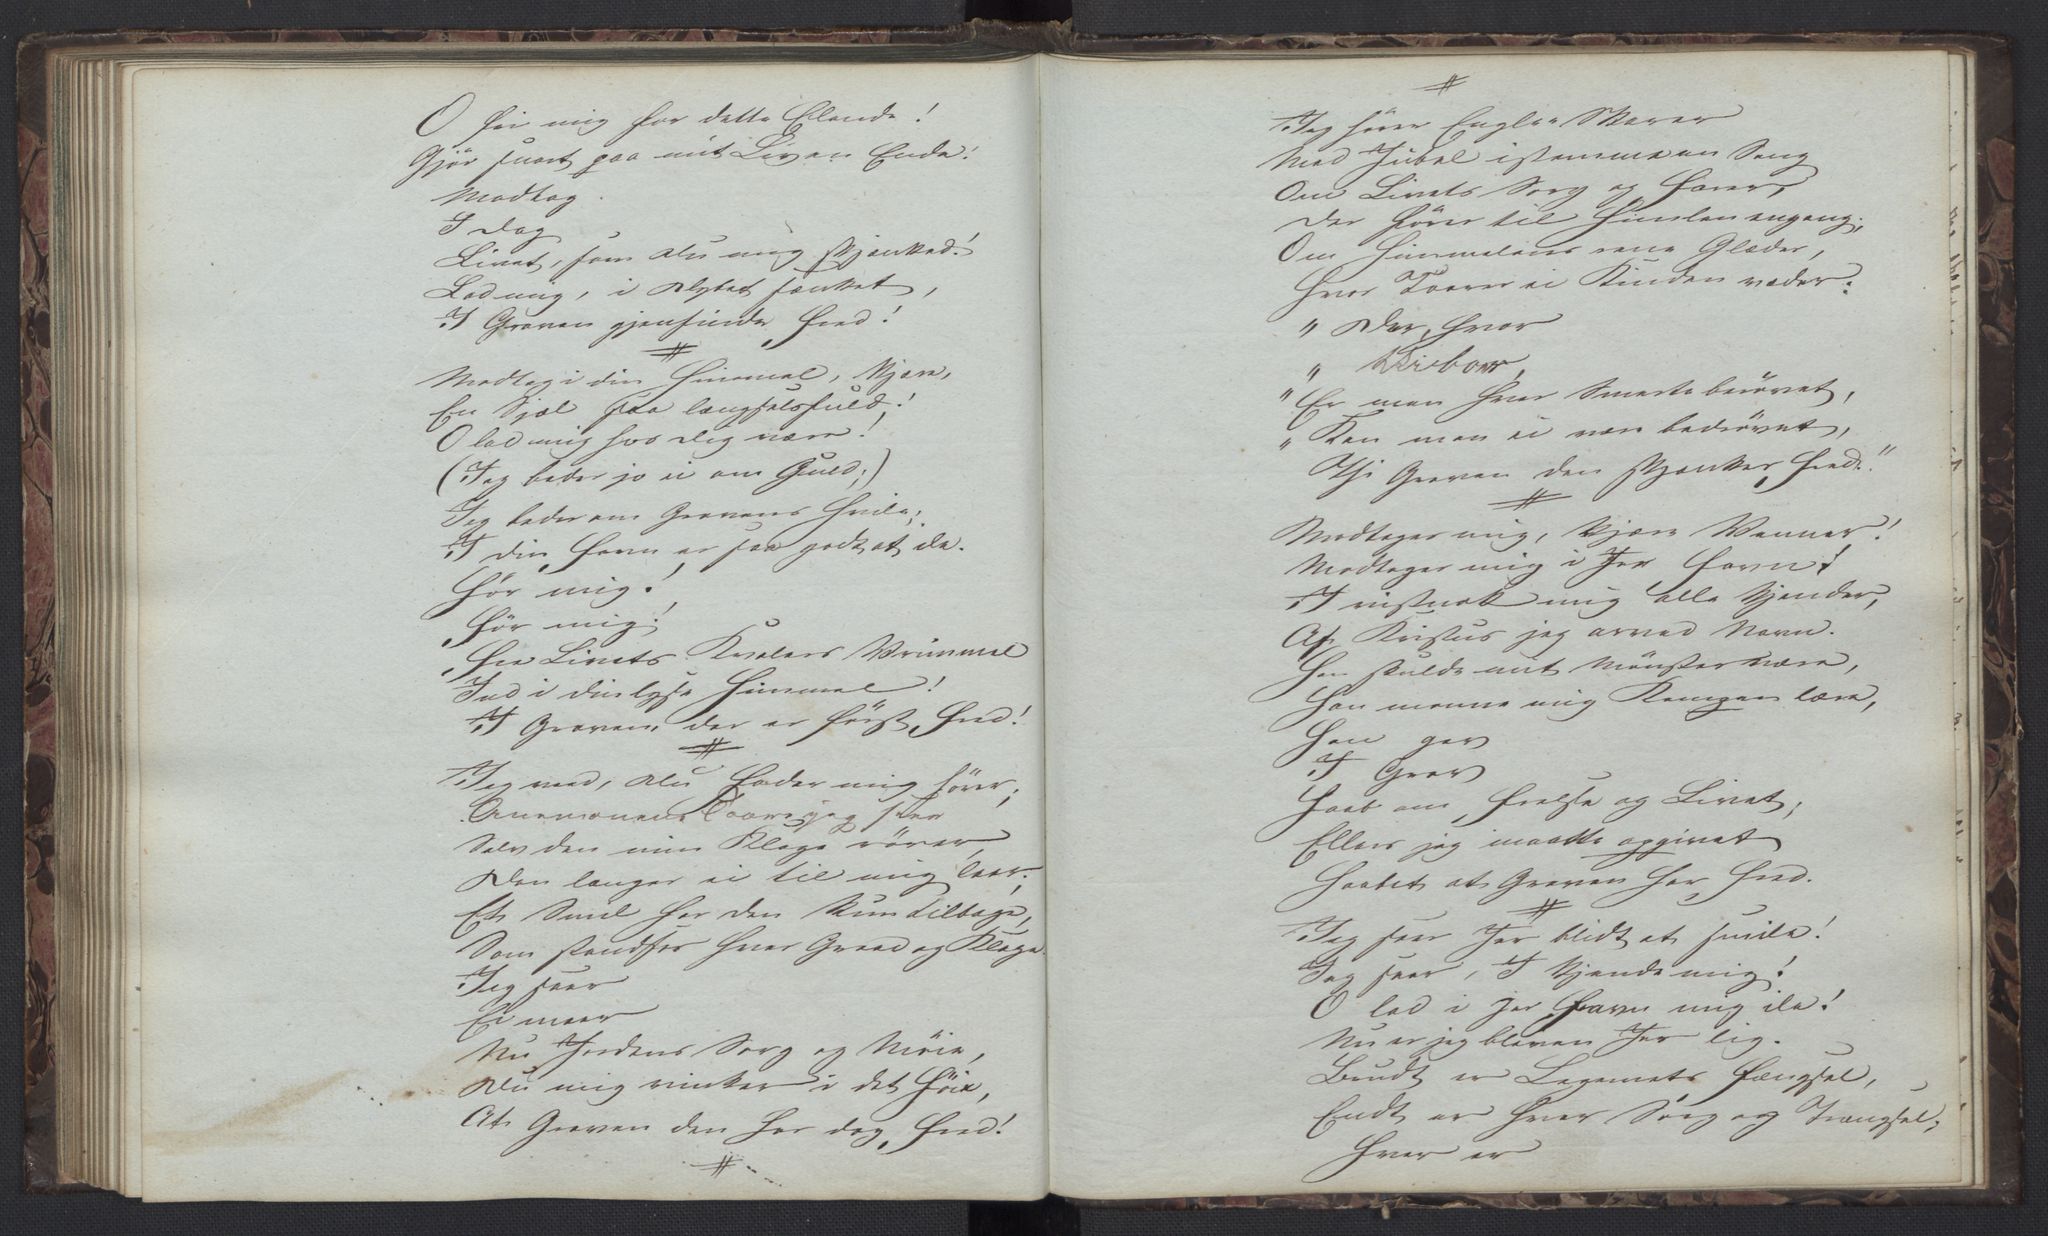 O fri mig for dette Elende!
Gjör snart paa mit Liv en Ende!
Modtag
I Dag
Livet, som Du mig skjænked!
Lad mig, i Dybet sænket,
I Graven gjenfinde Fred!
#
Modtag i din Himmel, kjære,
En Sjæl saa længselsfuld!
O lad mig hos Dig være!
(Jeg beder jo ei om Guld;)
Jeg beder om Gravens Hvile;
I din Favn er saa godt at ile.
Hör mig!
Hör mig!
Fra Livets Kvalers Vrimmel
Ind i din lyse Himmel!
I Graven, der er först Fred!
#
Jeg veed, Du Fader mig hörer;
Anemonens Taare jeg seer
Selv den min Klage rörer,
Den længer ei til mig leer;
Et Smil har den kun tilbage,
Som standser hver Graad og Klage.
Jeg seer
Ei meer
Nu Jordens Sorg og Möie,
Du mig vinker i det Höie,
At Graven den har dog Fred!
#
#
Jeg hörer Engle-Skarer
Med Jubel istemme en Sang
Om Livets Sorg og Farer,
Der förer til Himlen engang;
Om Himmelens rene Glæder,
Hvor Taarer ei Kinden væder:
" Der, hvor
" Vi boer,
" Er man hver Smerte berövet,
" Kan man ei være bedrövet,
Thi Graven den skjænker Fred."
#
Modtager mig, kjære Venner!
Modtager mig i Jer Favn!
I vistnok mig alle kjender,
Af Kristus jeg arved Navn.
Han skulde mit Mönster være,
Han monne mig Kampen lære,
Han gav
I Grav
Haab om Frelse og Livet;
Ellers jeg maatte opgivet
Haabet at Graven har Fred.
#
Jeg seer Jer blidt at smile!
Jeg seer, I kjende mig!
O lad i Jer Favn mig ile!
Nu er jeg bleven Jer lig.
Brudt er Legemets Fængsel,
Endt er hver Sorg og Trængsel;
Hver er